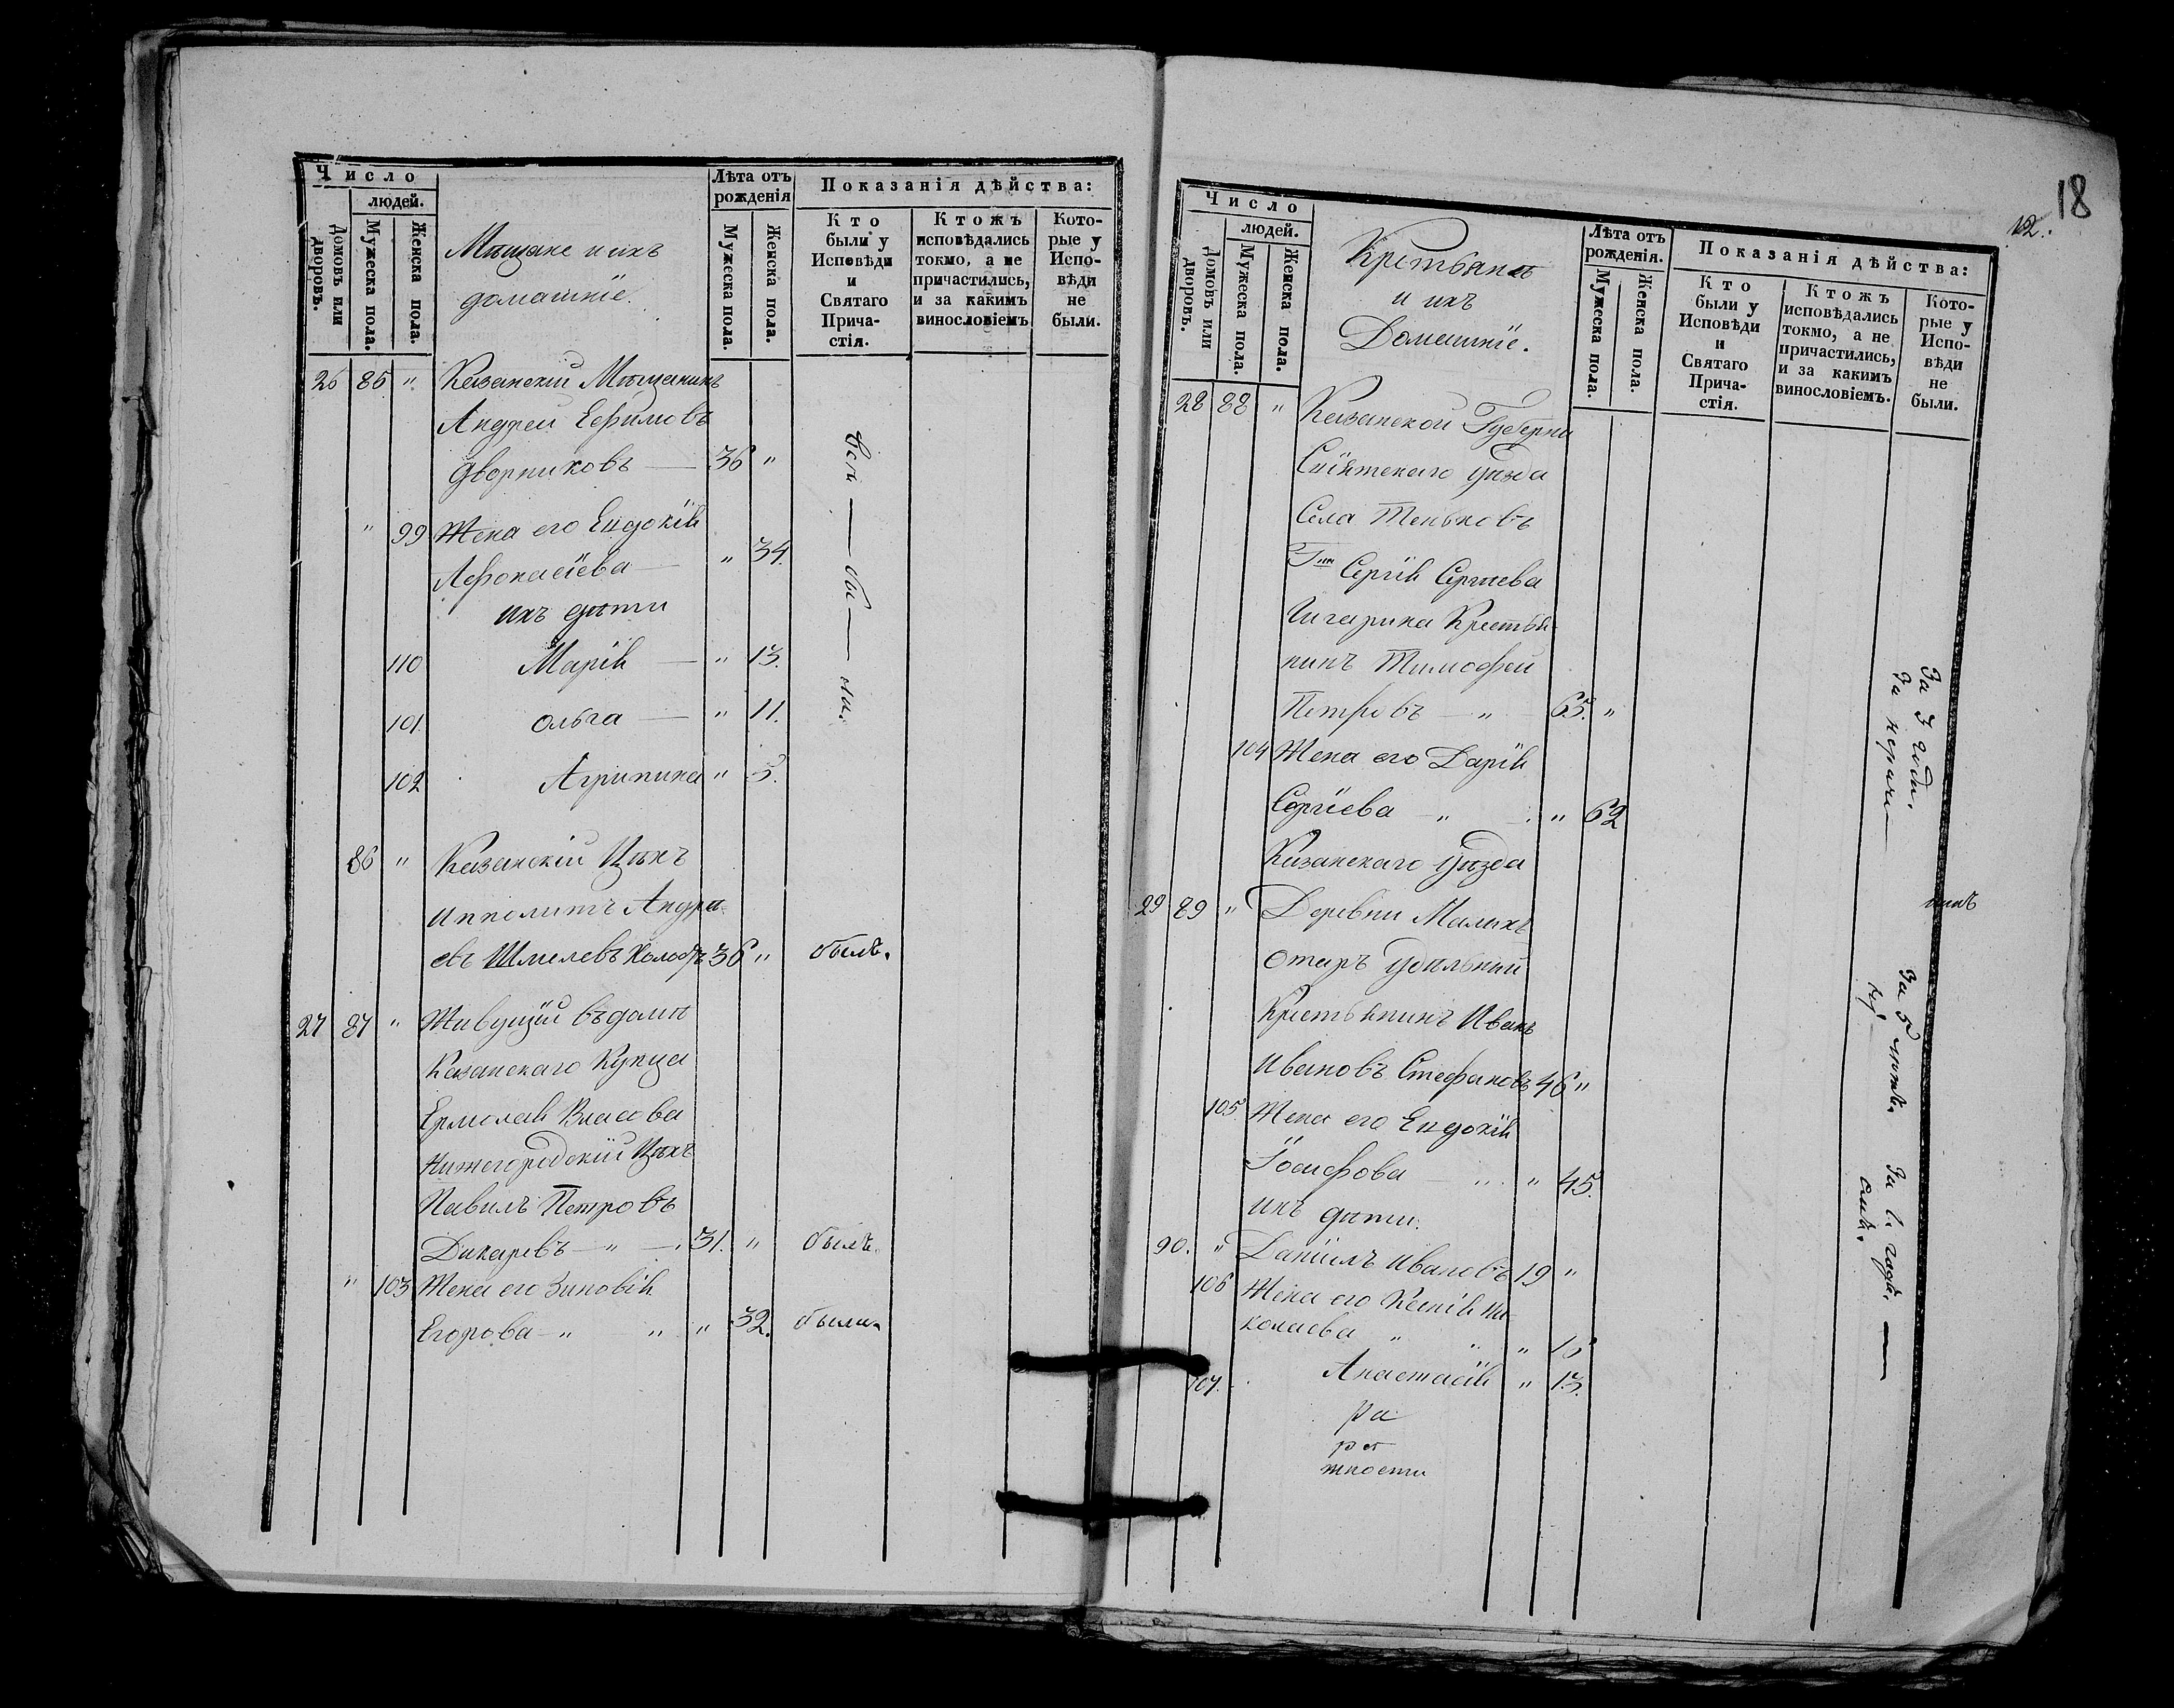 Число
людей.
Домовъ или дворовъ.
Мужеска пола.
Женска пола.
Мѣщане и ихъ
домашніе.
Лѣта отъ рожденія
Мужеска пола.
Женска пола.
Показанія дѣйства:
Кто были у Исповѣди и Святаго Причастія.
Ктожъ исповѣдались токмо, а не причастились, и за какимъ винословіемъ
Которые у Исповѣди не были.
26 85 " Казанскій Мѣщанинъ
Андрей Ефимовъ
Дворниковъ — 36 "
" 99 Жена его Евдокія
Афонасіева — " 34.
ихъ дѣти
110 Марія — " 13.
101. Ольга — " 11.
102 Агрипина " 5.
Всѣ — бы — ли.
86 " Казанскій Цѣхъ
Ипполитъ Андре-
евъ Шмелевъ Холостъ 36 " былъ.
27 87 " Живущій въ домѣ
Казанскаго Купца
Ермолая Власова
Нижегородскій Цѣхъ
Павилъ Петровъ
Дикаревъ — " — 31. " былъ.
" 103 Жена его Зиновія
Егорова — " " " 32. были.
18
12.
Число
людей.
Домовъ или дворовъ.
Мужеска пола.
Женска пола.
Крестьяне
и ихъ
Домашніе.
Лѣта отъ рожденія.
Мужеска пола.
Женска пола.
Показанія дѣйства:
Кто были у Исповѣди и Святаго Причастія.
Ктожъ исповѣдались токмо, а не причастились, и за какимъ винословіемъ.
Которые у Исповѣди не были.
28 88 " Казанской Губерни
Свіяжскаго уѣзда
Села Теньковъ
Сергія Сергиева
Крестья-
нинъ Тимофей
Петровъ — " — 65. "
104 Жена его Дарія
Сергіева — " " 62
Казанскаго уѣзда
29 89 " Деревни Малихъ
Отаръ Удѣльный
Крестьянинъ Иванъ
Ивановъ Стефановъ 46 "
105 Жена его Евдокія
Іосифова — " " 45.
ихъ дѣти.
90. " Даніилъ Ивановъ 19 "
106 Жена его Ксенія Ни-
колаева " " "
107. Анастасія " 13.
За 3 года.
За 5 лѣтъ.